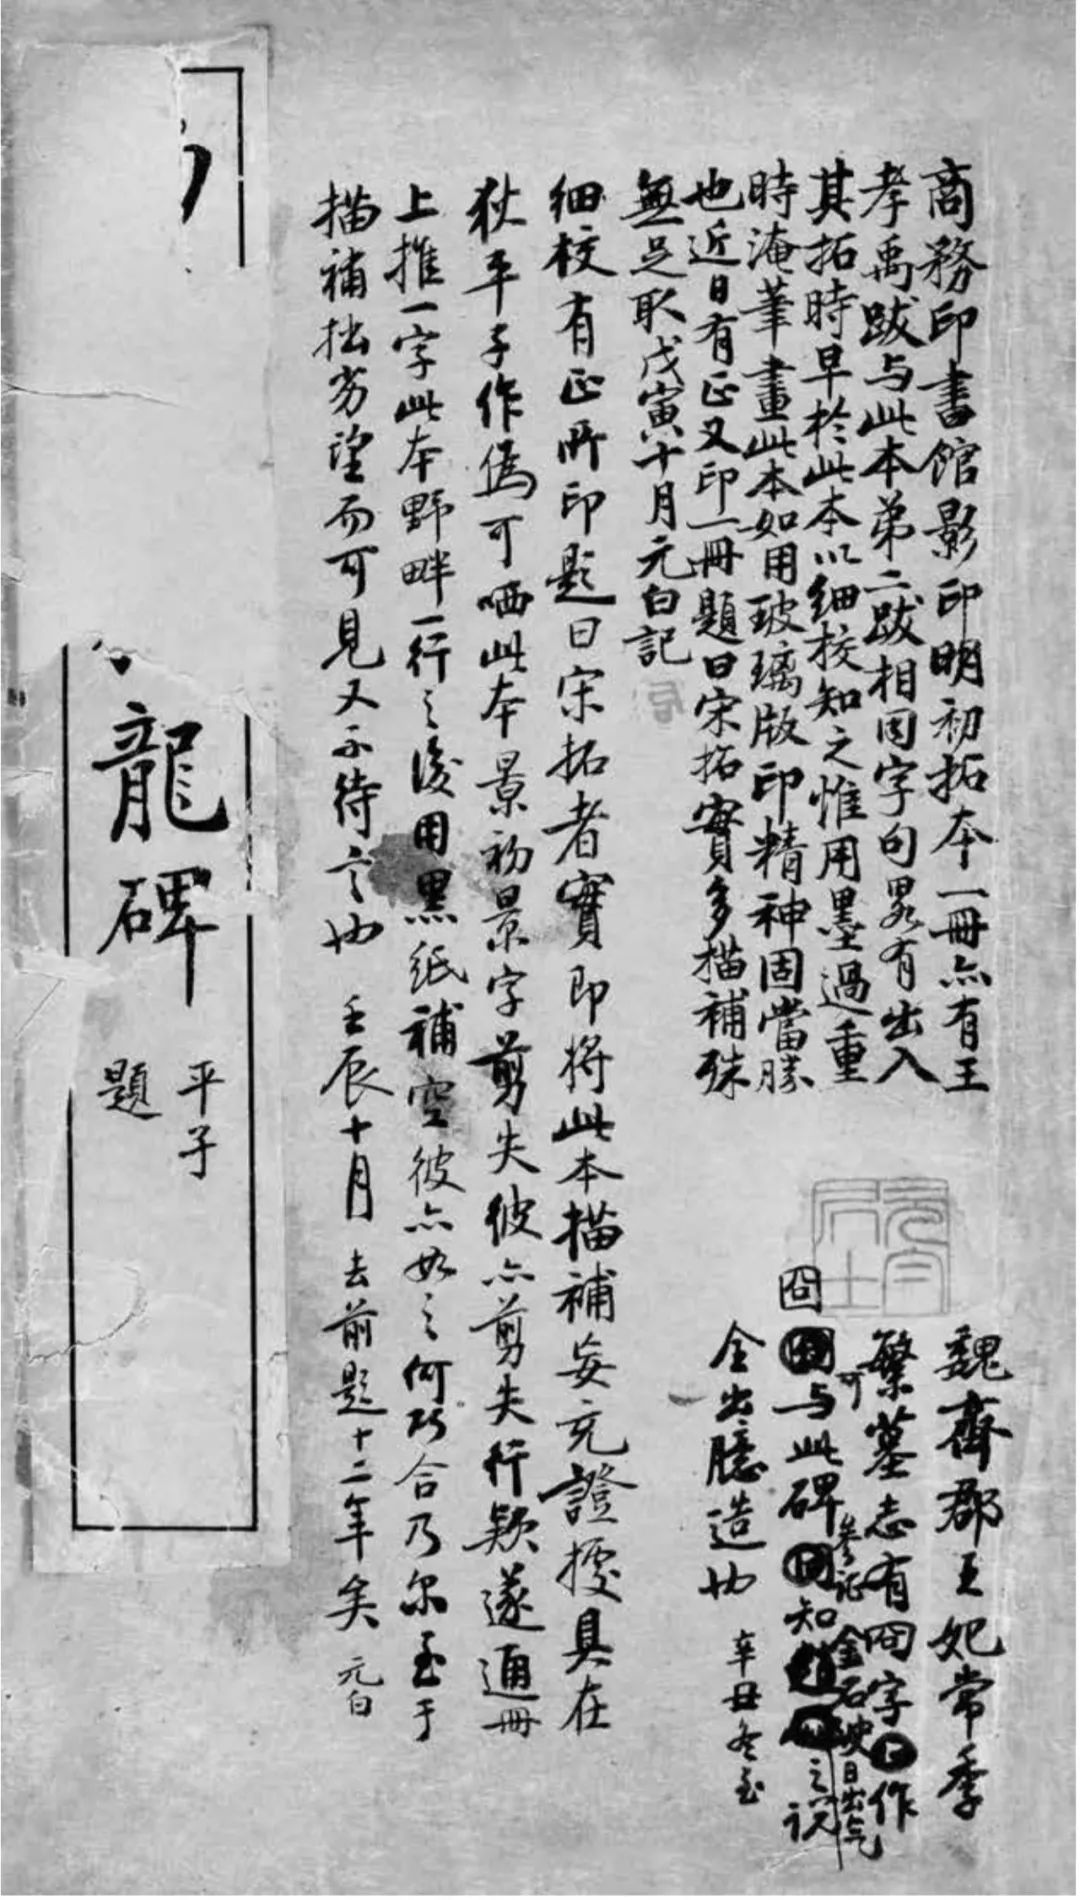 商務印書館影印明初拓本一冊亦有王
孝禹跋与此本弟二跋相同字句畧有出入
其拓時早於此本以細校知之惟用墨過重
時淹筆畫此本如用玻璃版印精神固當勝
也近日有正又印一冊題曰宋拓實多描補殊
無足取戊寅十月元白記
細校有正所印題曰宋拓者實即將此本描補妄充證據具在
狄平子作偽可哂此本景初景字剪失彼亦剪失行款遂通冊
上推一字此本野畔一行之後用黑紙補空彼亦如之何巧合乃尔至于
描補拙劣望而可見又不待言也 壬辰十月 去前題十二年矣 元白
魏齊郡王妃常季
繁墓志有冏字作
囧
与此碑 知 之说
可参证金石史日出气
全出臆造也 辛丑冬至
元白居士
龍碑
平子
題